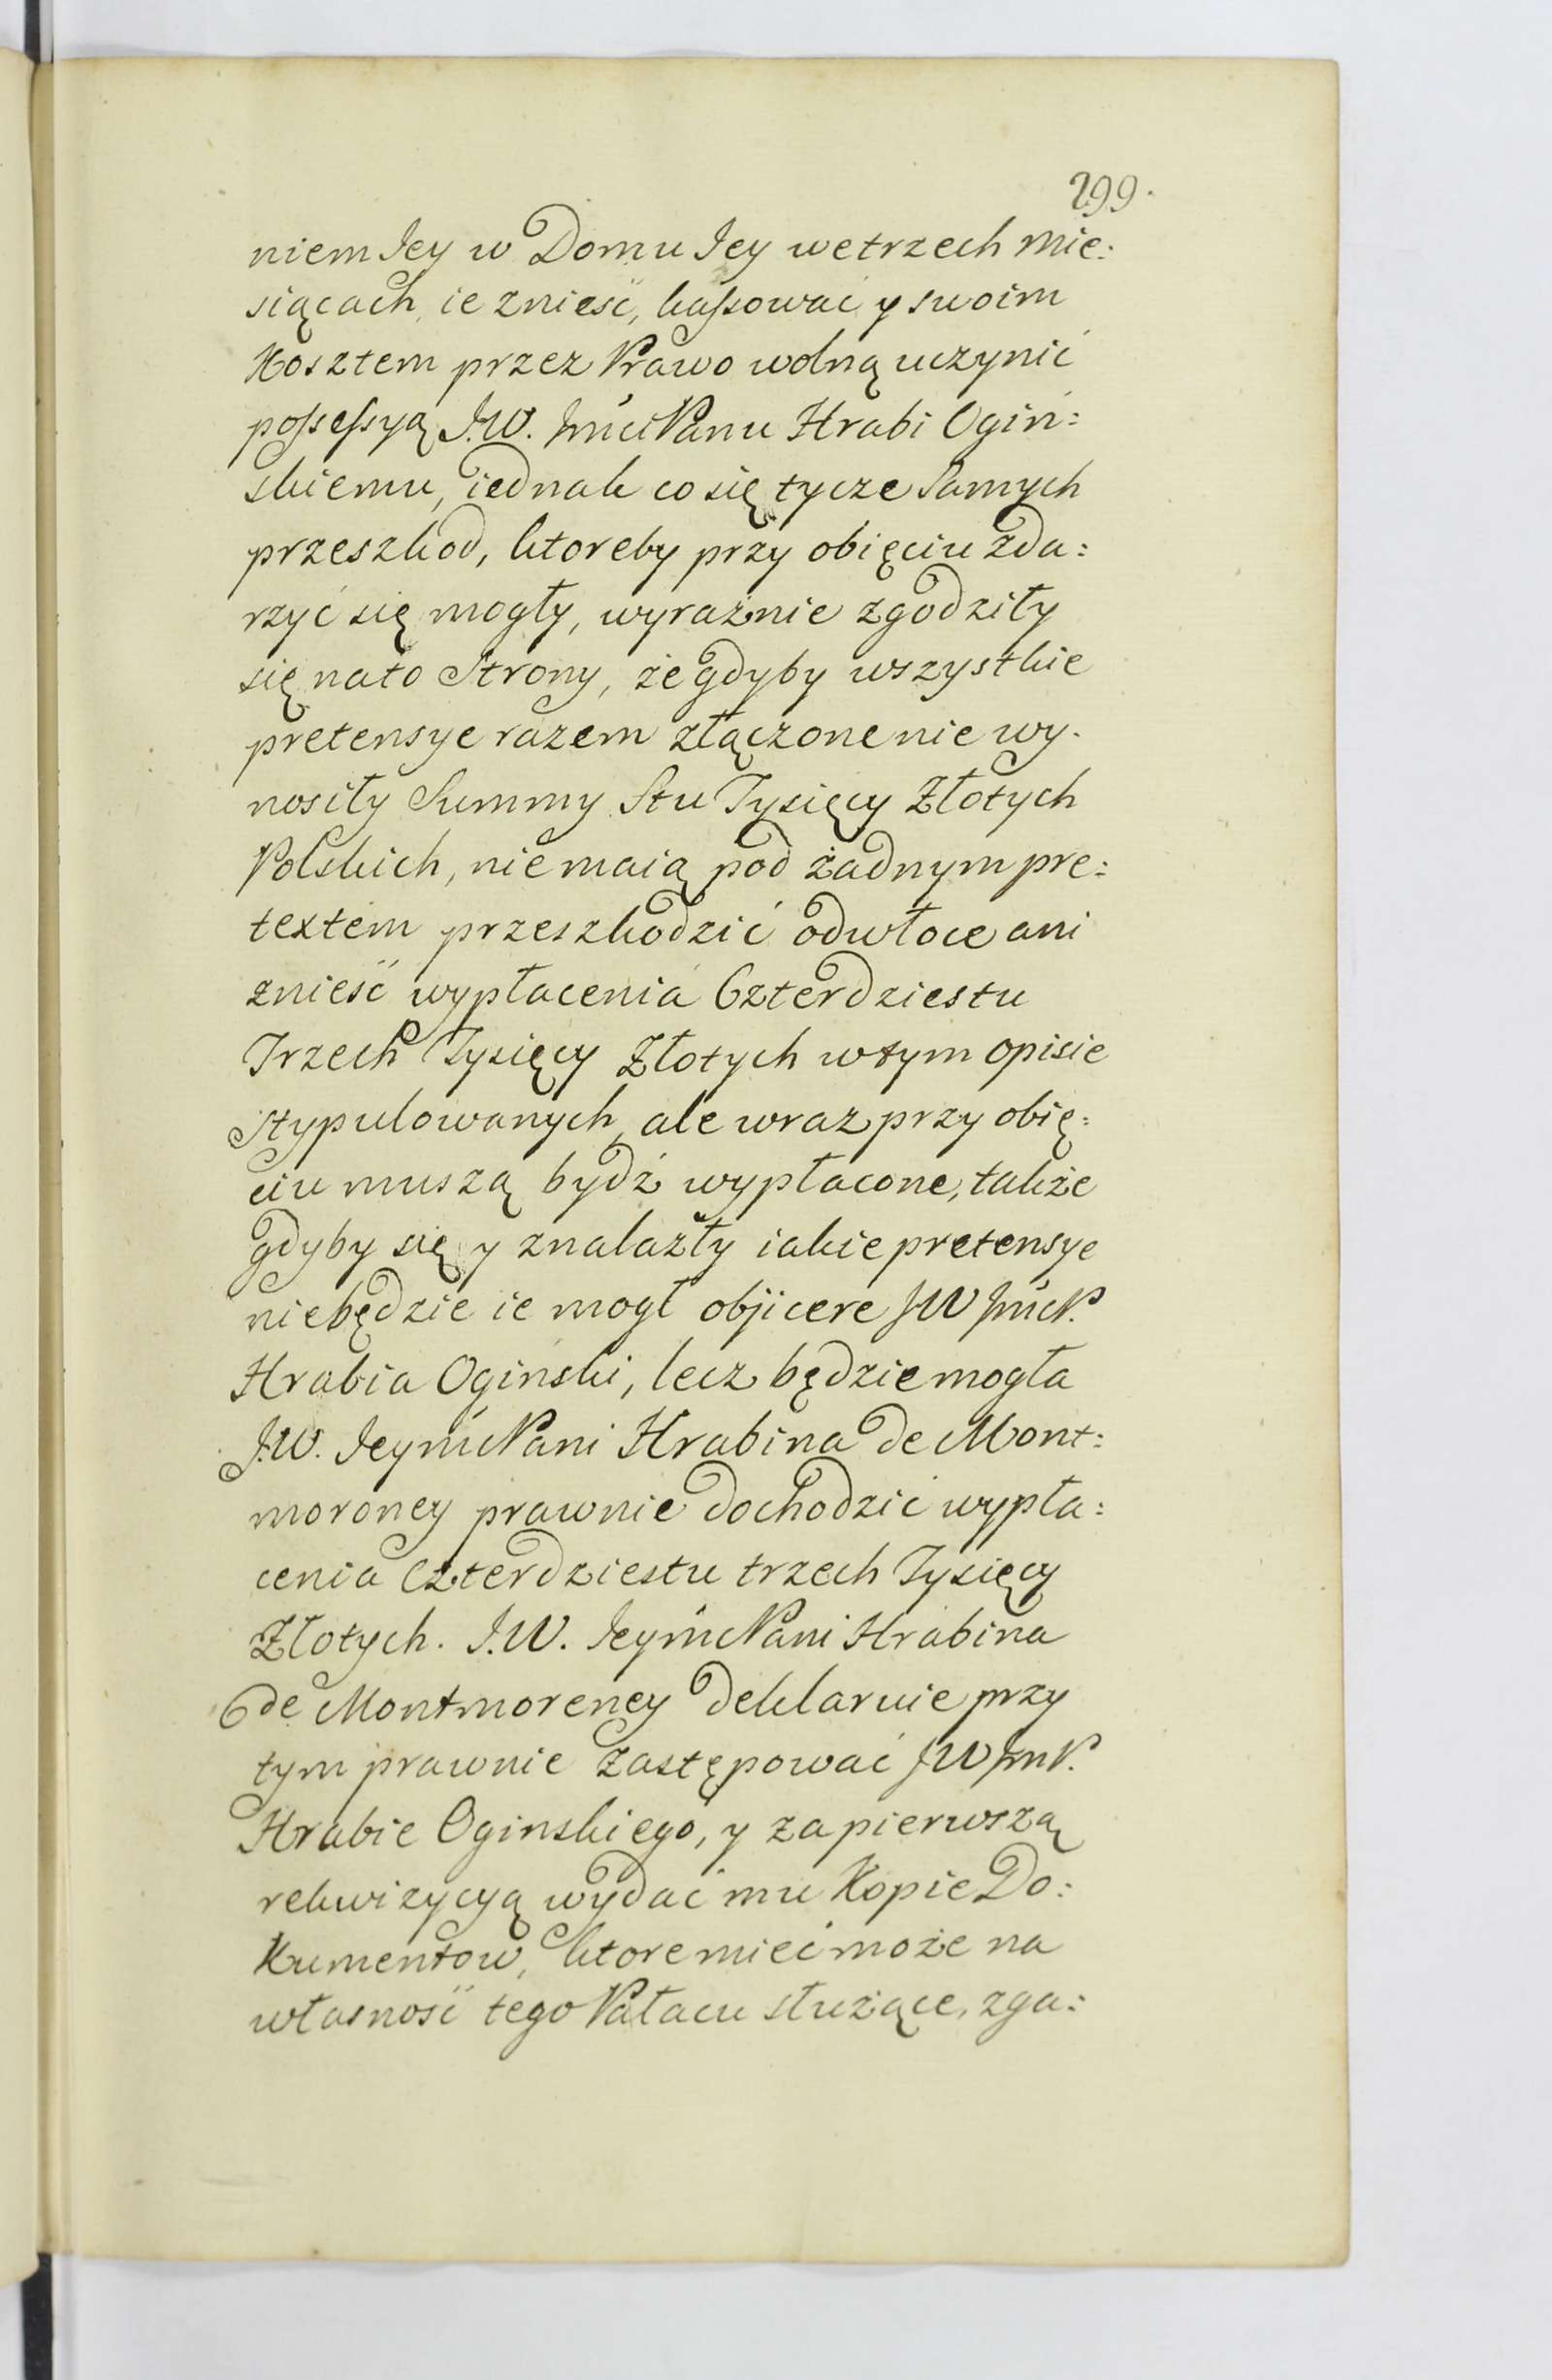 299.
niem Jey w Domu Jey we trzech mie:
siącach, ie znieść, kassować y swoim
Kosztem przez Prawo wolną uczynić
possessyą J.W. Jmci Panu Hrabi Ogiń:
skiemu, iednak co się tycze Samych
przeszkod, ktoreby przy obięciu zda:
rzyć się mogły, wyraźnie zgodziły
się na to Strony, że gdyby wszystkie
pretensye razem złączone nie wy:
nosiły Summy Stu Tysięcy Złotych
Polskich, nie maią pod żadnym pre:
textem przeszkodzić odwłoce ani
znieść wypłacenia Czterdziestu
Trzech Tysięcy Złotych w tym opisie
Stypulowanych, ale wraz przy obię:
ciu muszą bydź wypłacone, także
gdyby się y znalazły iakie pretensye
nie będzie ie mogł objicere JW Jmć P.
Hrabia Oginski, lecz będzie mogła
J.W. Jeymć Pani Hrabina de Mont:
moroncy prawnie dochodzić wypła:
cenia Czterdziestu trzech Tysięcy
Złotych. J.W. Jeymć Pani Hrabina
de Montmorency deklaruie przy
tym prawnie zastępować JW Jmć P.
Hrabie Oginskiego, y za pierwszą
rekwizycyą wydać mu Kopie Do:
kumentow, ktore mieć może na
własność tego Pałacu służące, zga: